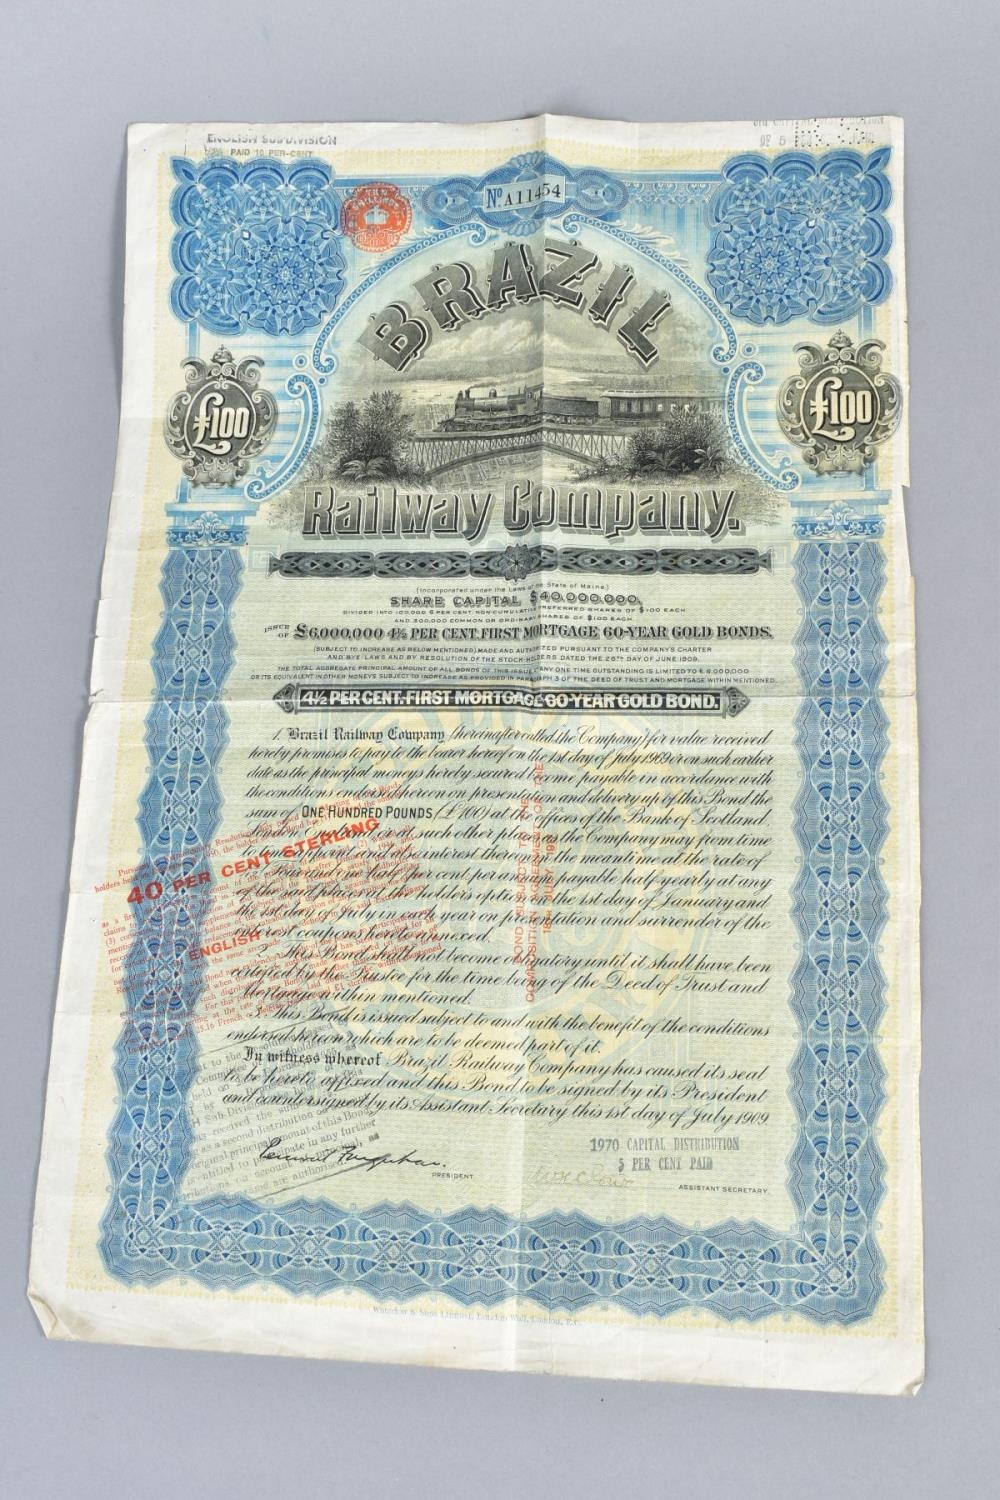 ENGLISH SUBDIVISION
PAID 10 PER-CENT
TEN
SHILLINGS
No A11454
BRAZIL
£100
£100
Railway Company.
(Incorporated under the Laws of the State of Maine.)
SHARE CAPITAL $40,000,000,
DIVIDED INTO 100,000 6 PER CENT. NON-CUMULATIVE PREFERRED SHARES OF $100 EACH
AND 300,000 COMMON OR ORDINARY SHARES OF $100 EACH.
ISSUE OF £6,000,000 4½ PER CENT. FIRST MORTGAGE 60-YEAR GOLD BONDS.
(SUBJECT TO INCREASE AS BELOW MENTIONED) MADE AND AUTHORIZED PURSUANT TO THE COMPANY'S CHARTER
AND BYE-LAWS AND BY RESOLUTION OF THE STOCK-HOLDERS DATED THE 26TH DAY OF JUNE 1909.
THE TOTAL AGGREGATE PRINCIPAL AMOUNT OF ALL BONDS OF THIS ISSUE AT ANY ONE TIME OUTSTANDING IS LIMITED TO £6,000,000
OR ITS EQUIVALENT IN OTHER MONEYS SUBJECT TO INCREASE AS PROVIDED IN PARAGRAPH 3 OF THE DEED OF TRUST AND MORTGAGE WITHIN MENTIONED.
4½ PER CENT. FIRST MORTGAGE 60-YEAR GOLD BOND.
1. Brazil Railway Company (hereinafter called the Company) for value received
hereby promises to pay to the bearer hereof on the 1st day of July 1969 or on such earlier
date as the principal moneys hereby secured become payable in accordance with
the conditions endorsed hereon on presentation and delivery up of this Bond the
sum of ONE HUNDRED POUNDS (£100) at the offices of the Bank of Scotland
London England or at such other place as the Company may from time
to time appoint and also interest thereon in the meantime at the rate of
Four and one half per cent per annum payable half-yearly at any
of the said places at the holder's option on the 1st day of January and
the 1st day of July in each year on presentation and surrender of the
interest coupons hereto annexed.
2. This Bond shall not become obligatory until it shall have been
certified by the Trustee for the time being of the Deed of Trust and
Mortgage within mentioned.
3. This Bond is issued subject to and with the benefit of the conditions
endorsed hereon which are to be deemed part of it.
In witness whereof Brazil Railway Company has caused its seal
to be hereto affixed and this Bond to be signed by its President
and countersigned by its Assistant Secretary this 1st day of July 1909
40 PER CENT STERLING
ENGLISH
BOND SUBJECT TO THE
COMPOSITION AGREEMENT OF THE
1970 CAPITAL DISTRIBUTION
5 PER CENT PAID
PRESIDENT
ASSISTANT SECRETARY.
Waterlow & Sons Limited, London Wall, London, E.C.